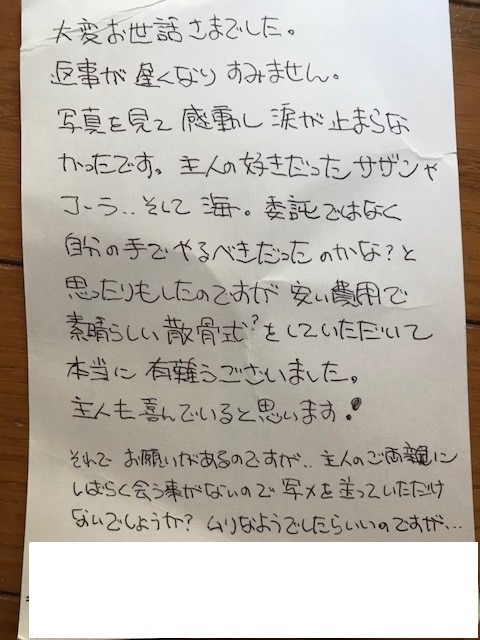 大変お世話さまでした。
返事が遅くなりすみません。
写真を見て感動し涙が止まらな
かったです。主人の好きだったサザンや
コーラ‥そして海。委託ではなく
自分の手でやるべきだったのかな?と
思ったりもしたのですが安い費用で
素晴らしい散骨式?をしていただいて
本当に有難うございました。
主人も喜んでいると思います!
それでお願いがあるのですが‥主人のご両親に
しばらく会う事がないので写メを送っていただけ
ないでしょうか?ムリなようでしたらいいのですが…